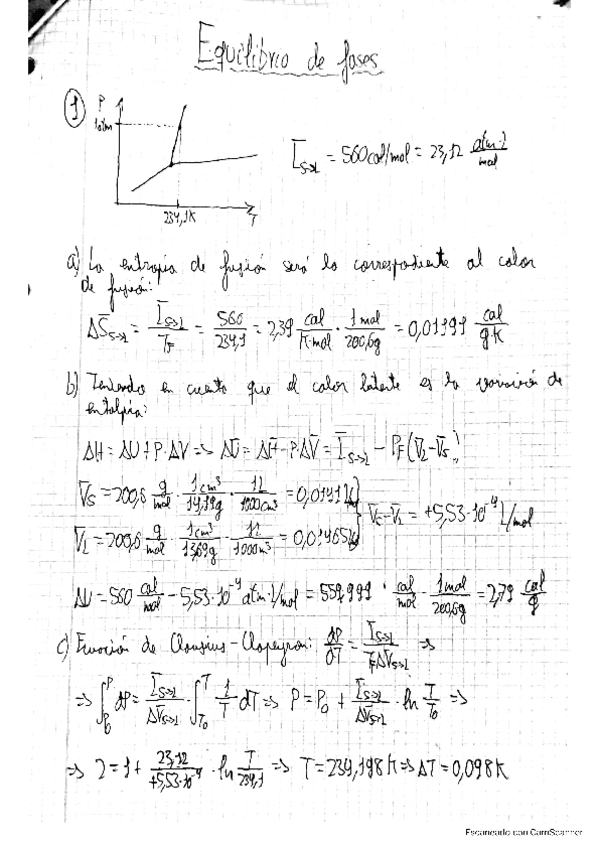 Equilibrio de fases
1
P
1atm
234,1K
T
L̄s→l = 560 cal/mol = 23,12 atm·l/mol
a) La entropía de fusión será la correspondiente al calor
de fusión:
ΔS̄s→l = L̄s→l/TF = 560/234,1 = 2,39 cal/K·mol · 1 mol/200,6g = 0,01191 cal/g·K
b) Teniendo en cuenta que el calor latente es la variación de
entalpía:
ΔH = ΔU + P·ΔV => ΔŪ = ΔH̄ - P·ΔV̄ = L̄s→l - PF(V̄l - V̄s)
V̄s = 200,6 g/mol · 1cm³/14,19g · 1l/1000cm³ = 0,0141
V̄l = 200,6 g/mol · 1cm³/13,69g · 1l/1000m³ = 0,01465
= +5,53·10⁻⁴ l/mol
ΔU = 560 cal/mol - 5,53·10⁻⁴ atm·l/mol = 559,999 · cal/mol · 1mol/200,6g = 2,79 cal/g
c) Ecuación de Clausius-Clapeyron: dP/dT = L̄s→l/TFΔV̄s→l =>
=> ∫P₀P dP = L̄s→l/ΔV̄s→l · ∫T₀T 1/T dT => P = P₀ + L̄s→l/ΔV̄s→l · ln T/T₀ =>
=> 2 = 1 + 23,12/+5,53·10⁻⁴ · ln T/234,1 => T = 234,198K => ΔT = 0,098K
Escaneado con CamScanner